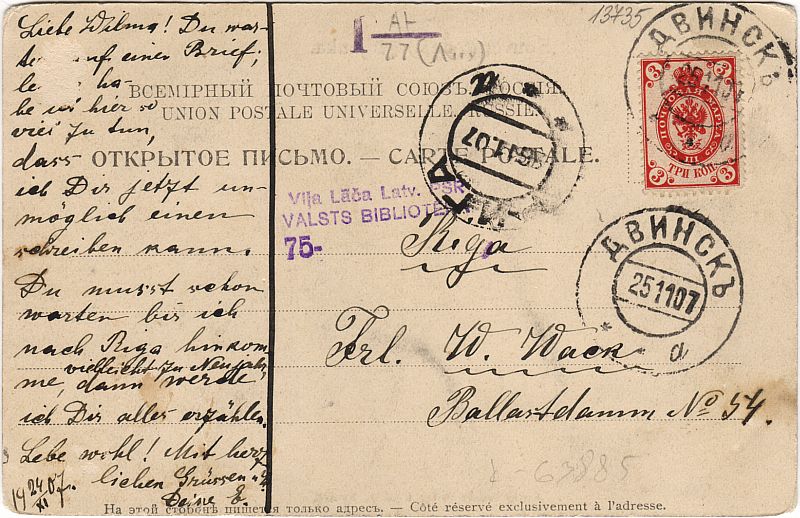 Liebe Wilma! Du war-
test auf einen Brief,
be ich hier so
viel zu tun,
dass
ich Dir jetzt un-
möglich einen
schreiben kann.
Du musst schon
warten bis ich
nach Riga hinkom
vielleicht zu Neujahr
me, dann werde
ich Dir alles erzählen.
Lebe wohl! Mit herz
lichen Grüssen
Deine E.
19 24/XI 07.
I
13735
ВСЕМІРНЫЙ ПОЧТОВЫЙ СОЮЗЪ. РОССІЯ.
UNION POSTALE UNIVERSELLE. RUSSIE.
ОТКРЫТОЕ ПИСЬМО. — CARTE POSTALE.
Viļa Lāča Latv. PSR
VALSTS BIBLIOTĒKA
75-
РИГА
26.11.07
а
ДВИНСКЪ
25 11 07
а
3 3
ПОЧТОВАЯ МАРКА
III
3 3
ТРИ КОП
ДВИНСКЪ
25 11 07
а
Riga
Frl. W. Wack
Ballastdamm No 54.
На этой сторонѣ пишется только адресъ. — Côté réservé exclusivement à l'adresse.